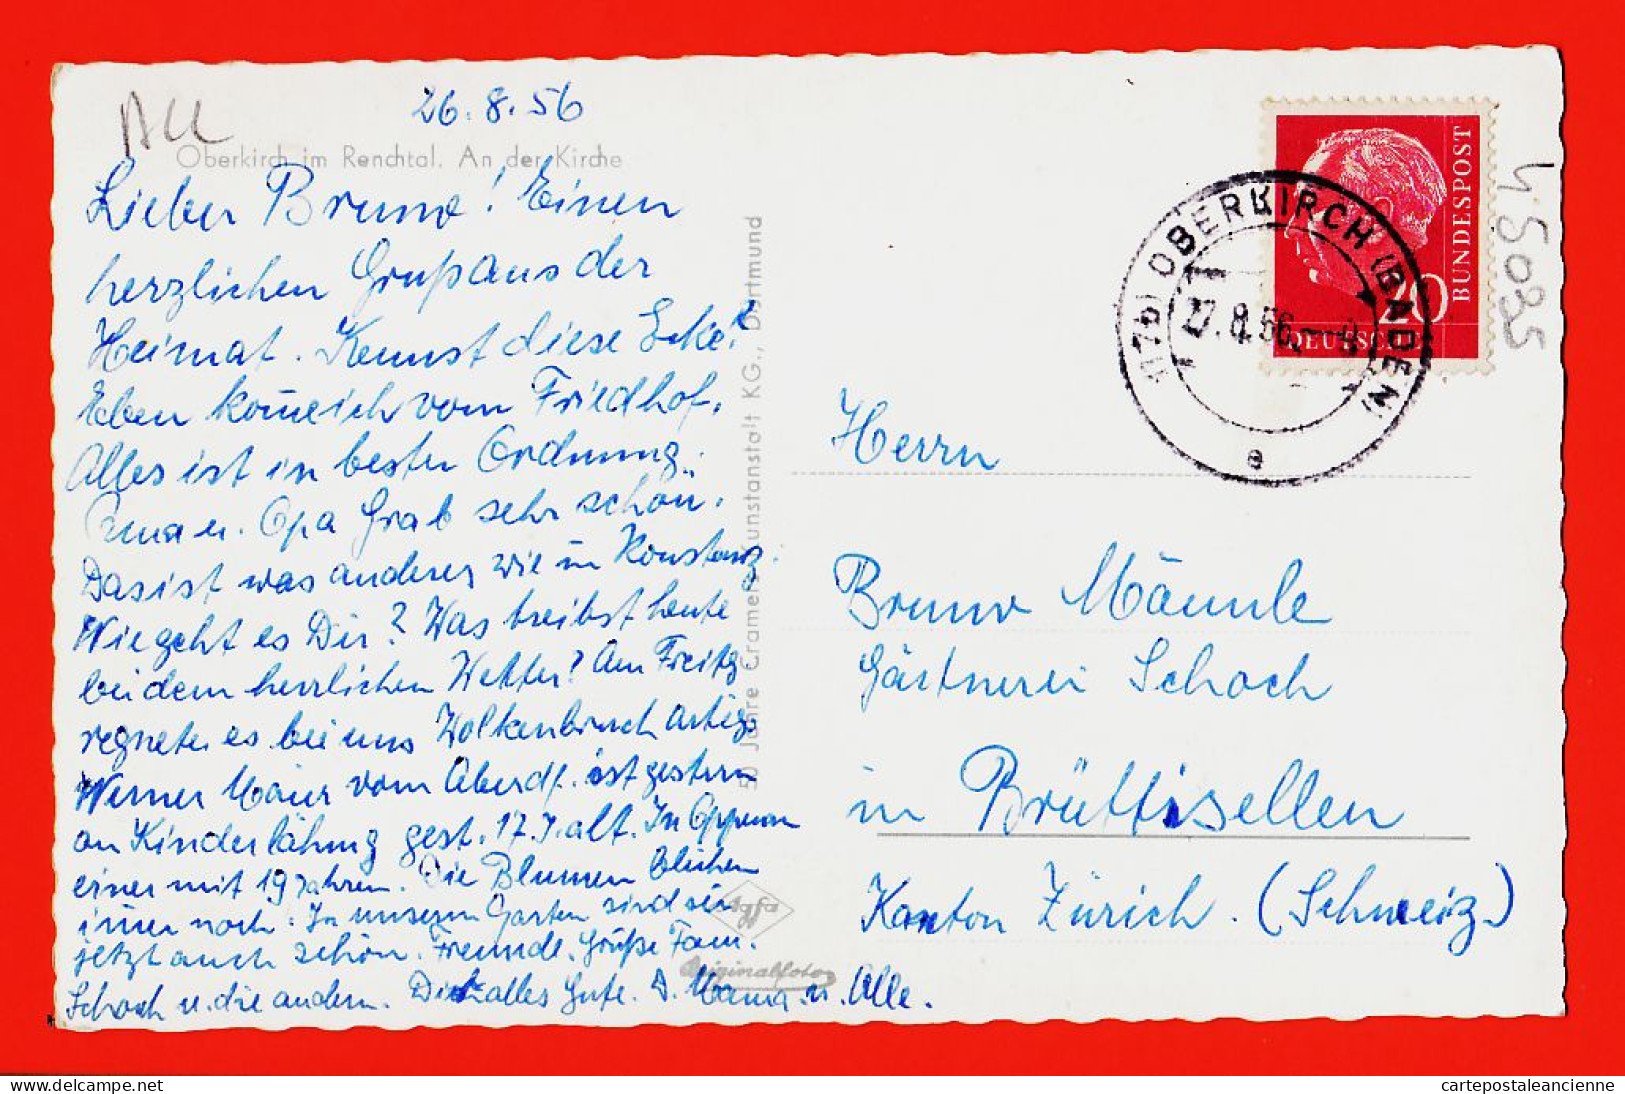 26.8.56
All
Oberkirch im Renchtal. An der Kirche
Lieber Bruno! Einen
herzlichen Gruß aus der
Heimat. Kennst diese Ecke?
Eben kom̅e ich vom Friedhof.
Alles ist in bester Ordnung.
Oma u. Opa Grab sehr schön.
Das ist was anderes wie in Konstanz.
Wie geht es Dir? Was treibst heute
bei dem herrlichen Wetter? Am Freitg
regnete es bei uns Wolkenbruch artig.
Werner Maier vom Oberdf. ist gestern
an Kinderlähmg gest. 17 J. alt. In Oppenau
einer mit 19 Jahren. Die Blumen blühen
im̅er noch. In unserem Garten sind sie
jetzt auch schön. Freundl. Grüße Fam.
Schoch u. die andern. Dir alles Gute. D. Mama u. Alle.
50 Jahre Cramers Kunstanstalt KG., Dortmund
Agfa
Originalfoto
BUNDESPOST
20
DEUTSCHE
(17b) OBERKIRCH (BADEN)
27.8.56
e
45035
Herrn
Bruno Männle
Gärtnerei Schoch
in Brüttisellen
Kanton Zürich. (Schweiz)
www.delcampe.net
cartepostaleancienne